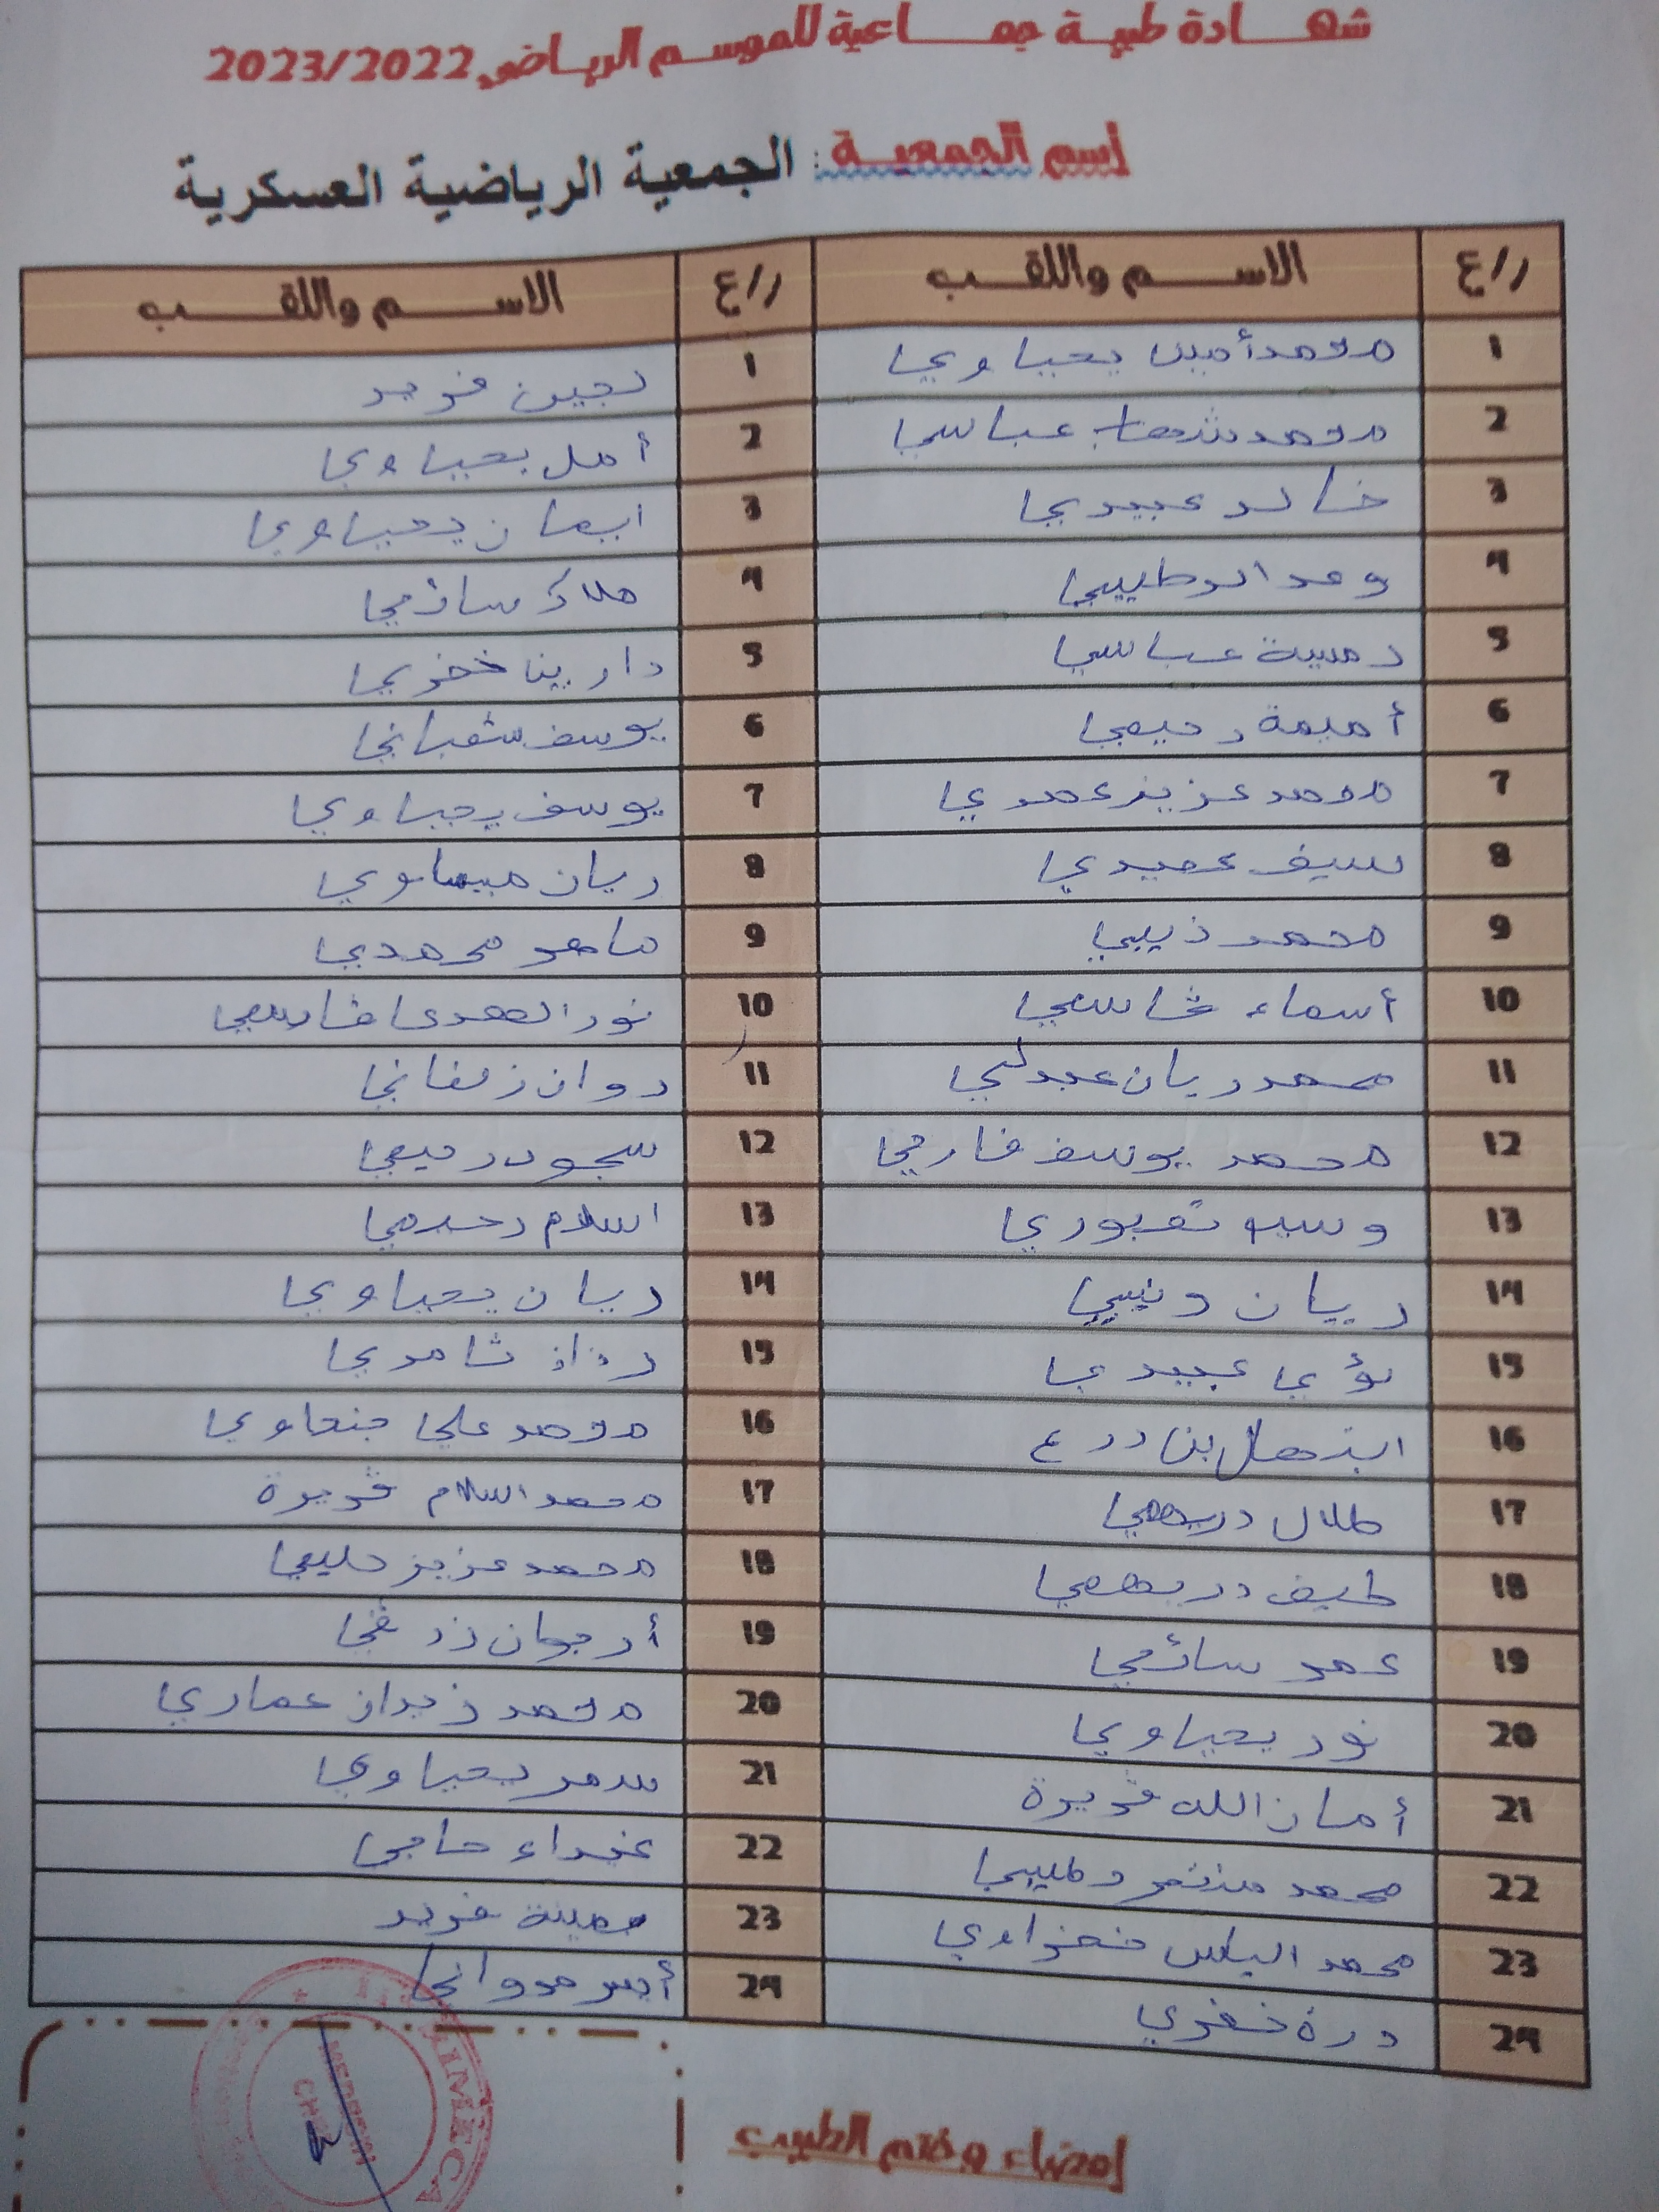 شهادة طبية جماعية للموسم الرياضي 2023/2022
إسم الجمعية : الجمعية الرياضية العسكرية
ر/ع الاسم واللقب ر/ع الاسم واللقب
1 محمد أمين يحياوي 1 لجين فريد
2 محمد شهاب عباسي 2 أمل يحياوي
3 خالد عبيدي 3 ايمان يحياوي
4 وعد الوطيبي 4 ملاك سائمي
5 عباسي 5 دارينا خضري
6 أميمة رحيمي 6 يوسف شعباني
7 محمد عزيز عمري 7 يوسف يحياوي
8 سيف عبيدي 8 ريان ميساوي
9 محمد ذيبي 9 ماهر محمدي
10 أسماء قاسمي 10 نور الهدى قاسمي
11 محمد ريان عبدلي 11 روان زلفاني
12 محمد يوسف فارحي 12 سجود رحيمي
13 13 اسلام رحيمي
14 ريان 14 ريان يحياوي
15 لؤي عبيدي 15 ثامري
16 ابتهال بن 16 محمد علي جنحاوي
17 طلال دريهمي 17 محمد اسلام قريرة
18 طيف دريهمي 18 محمد عزيز حليمي
19 عمر سائمي 19 أرجوان
20 نور يحياوي 20 محمد زيدان عماري
21 أمان الله قريرة 21 سمر يحياوي
22 محمد منتصر وطيبي 22 غيداء حاجي
23 محمد الياس خضراوي 23 يمينة فريد
24 درة خضري 24 مرواني
إمضاء وختم الطبيب